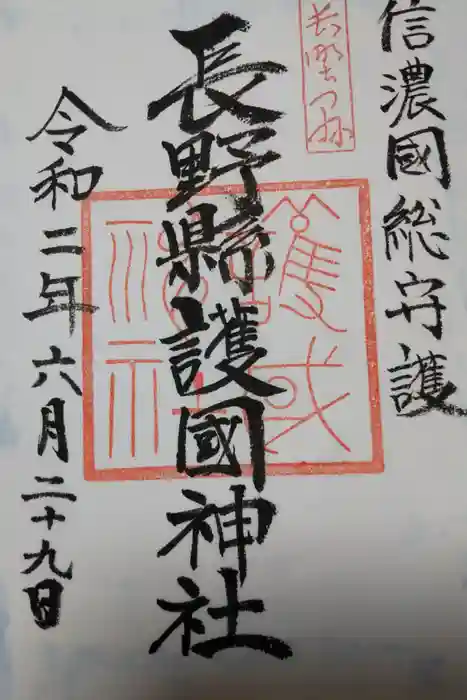 信濃國総守護
長野縣
長野縣護國神社
令和二年六月二十九日